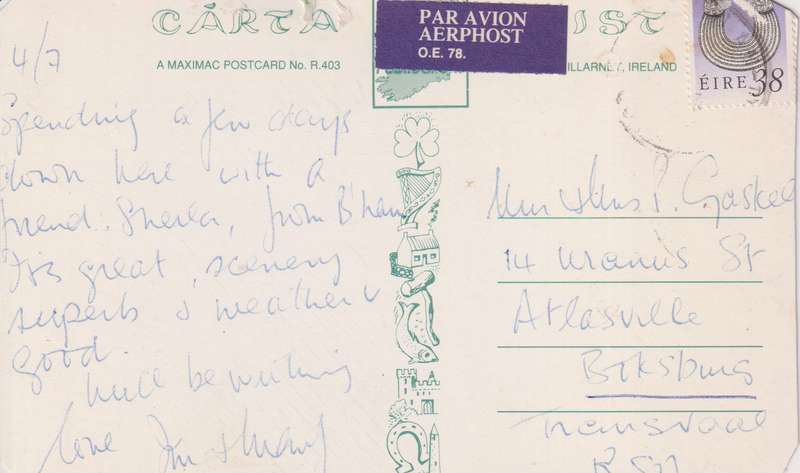 CÁRTA
IST
A MAXIMAC POSTCARD No. R.403
PAR AVION
AERPHOST
O.E. 78.
ILLARNEY, IRELAND
ÉIRE 38
4/7
Spending a few days
down here with a
friend. Sheila, from B'ham
Its great, scenery
superb & weather v
good.
Will be writing
love
14 Uranus St
Atlasville
Boksburg
Transvaal
RSA